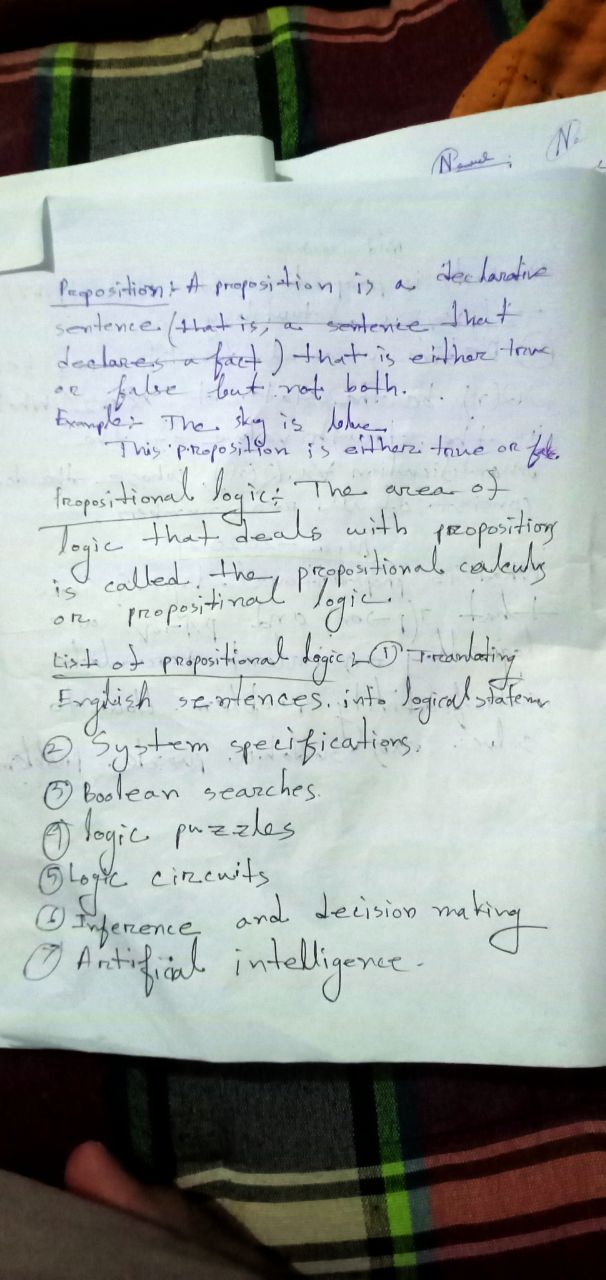 Name:
N
Proposition: A proposition is a declarative
sentence (that is, a sentence that
declares a fact) that is either true
or false but not both.
Example:- The sky is blue.
This proposition is either true or false.
Propositional logic: The area of
logic that deals with propositions
is called the propositional calculus
or propositinal logic.
List of propositional logic: ① Translating
English sentences into logical statemen
② System specifications.
③ Boolean searches.
④ logic puzzles
⑤ Logic circuits
⑥ Inference and decision making
⑦ Artifical intelligence.